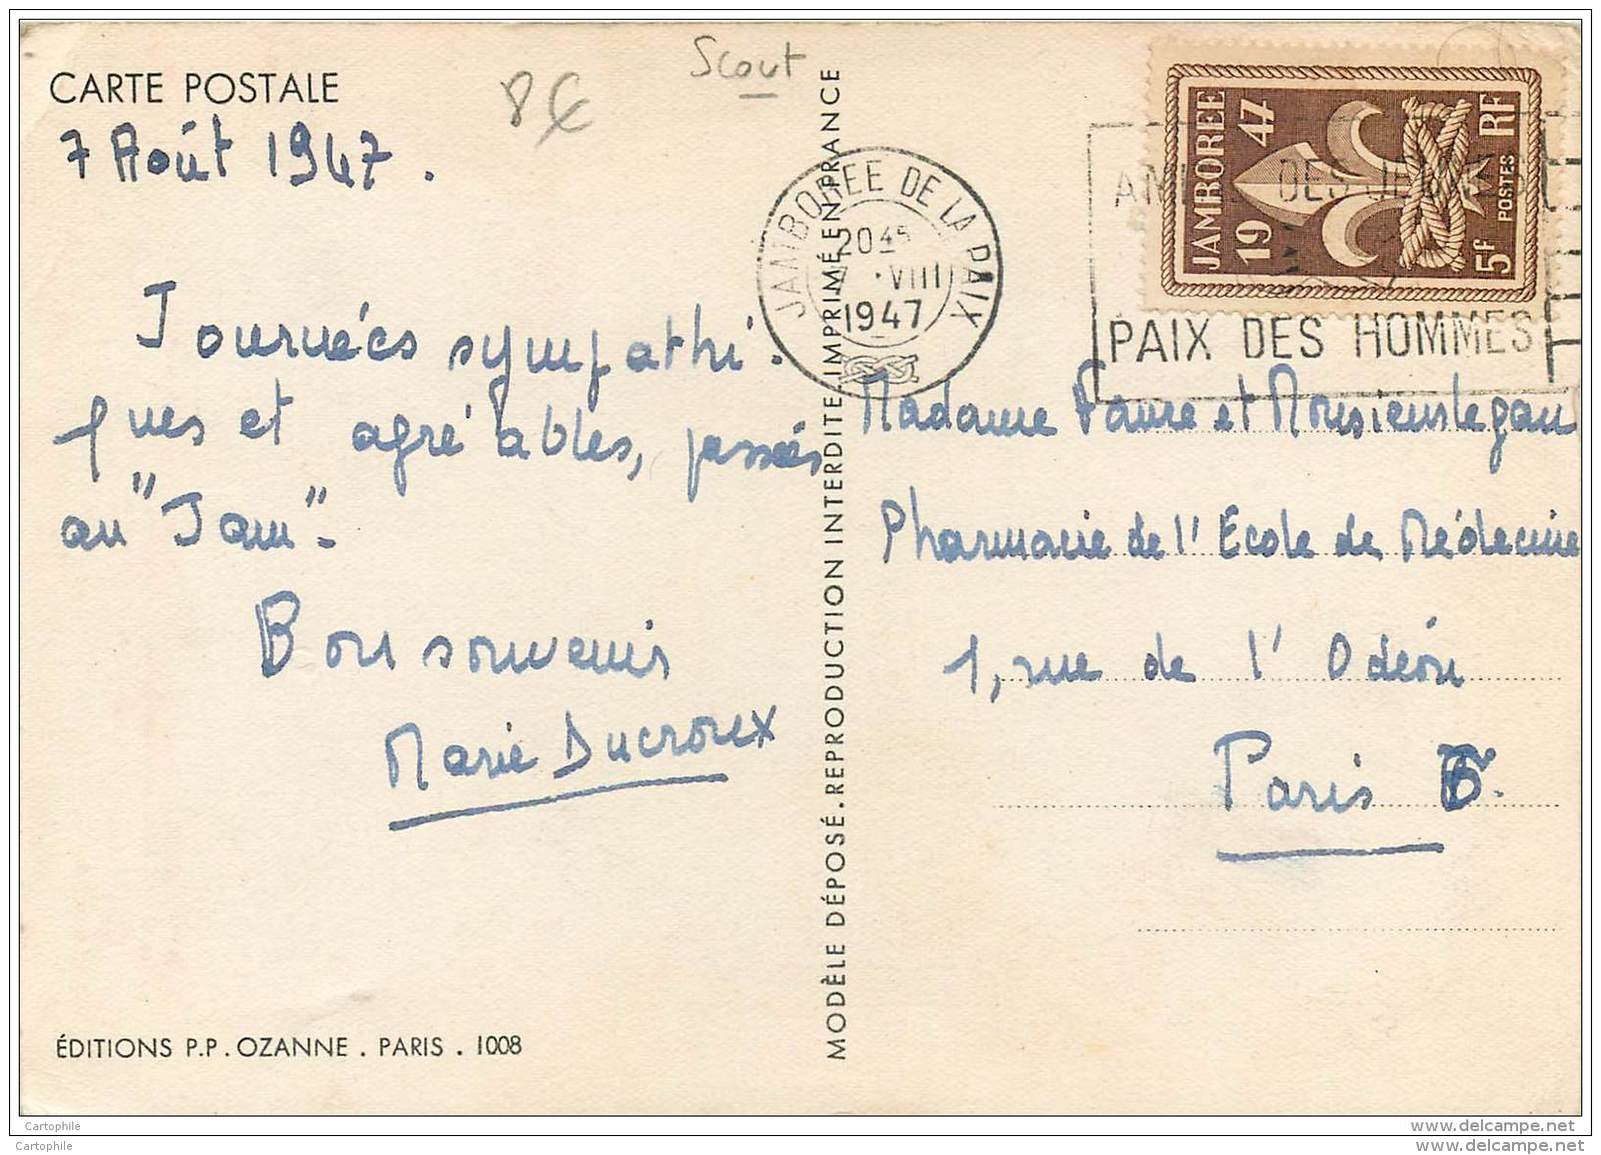 CARTE POSTALE
7 Août 1947.
8€
Scout
Journées sympathi-
ques et agréables, passées
au "Jam"-
Bon souvenir
Marie Ducroux
ÉDITIONS P.P. OZANNE . PARIS . 1008
MODÈLE DÉPOSÉ. REPRODUCTION INTERDITE. IMPRIMÉ EN FRANCE
JAMBOREE DE LA PAIX
20 45
7 • VIII
1947
DES JEUNES
PAIX DES HOMMES
JAMBOREE
19 47
5f POSTES RF
Madame Faure et Monsieur
Pharmacie de l'Ecole de Médecine
1, rue de l'Odéon
Paris 6
Cartophile
www.delcampe.net
Cartophile
www.delcampe.net